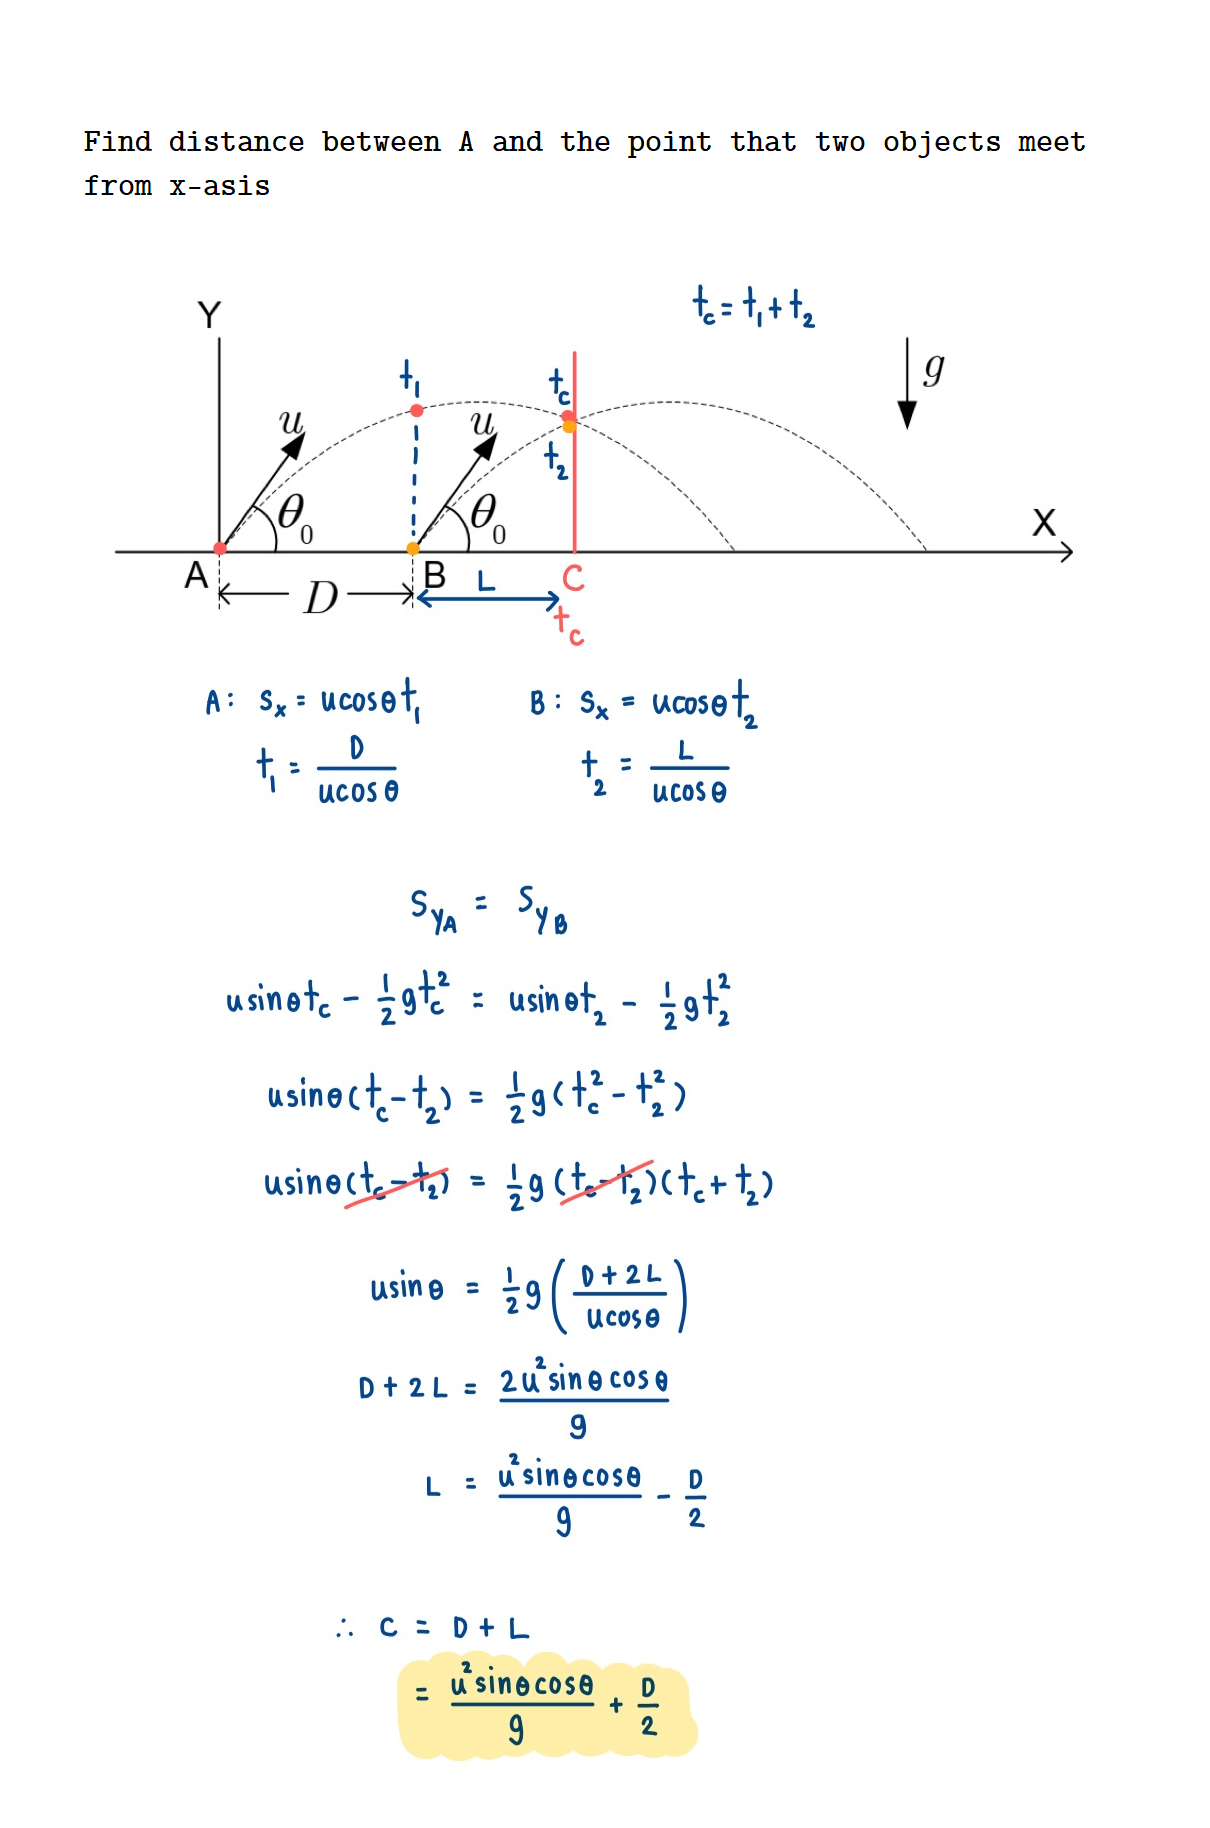 Find distance between A and the point that two objects meet
from x-asis
t_c = t_1 + t_2
Y
t_1
t_c
g
u
u
t_2
θ_0
θ_0
X
A
B
L
C
D
t_c
A: S_x = ucosθt_1
B: S_x = ucosθt_2
t_1 = D/ucosθ
t_2 = L/ucosθ
S_yA = S_yB
usinθt_c - 1/2 gt_c^2 = usinθt_2 - 1/2 gt_2^2
usinθ(t_c - t_2) = 1/2 g(t_c^2 - t_2^2)
usinθ(t_c - t_2) = 1/2 g(t_c - t_2)(t_c + t_2)
usinθ = 1/2 g(D + 2L/ucosθ)
D + 2L = 2u^2sinθcosθ/g
L = u^2sinθcosθ/g - D/2
∴ C = D + L
= u^2sinθcosθ/g + D/2